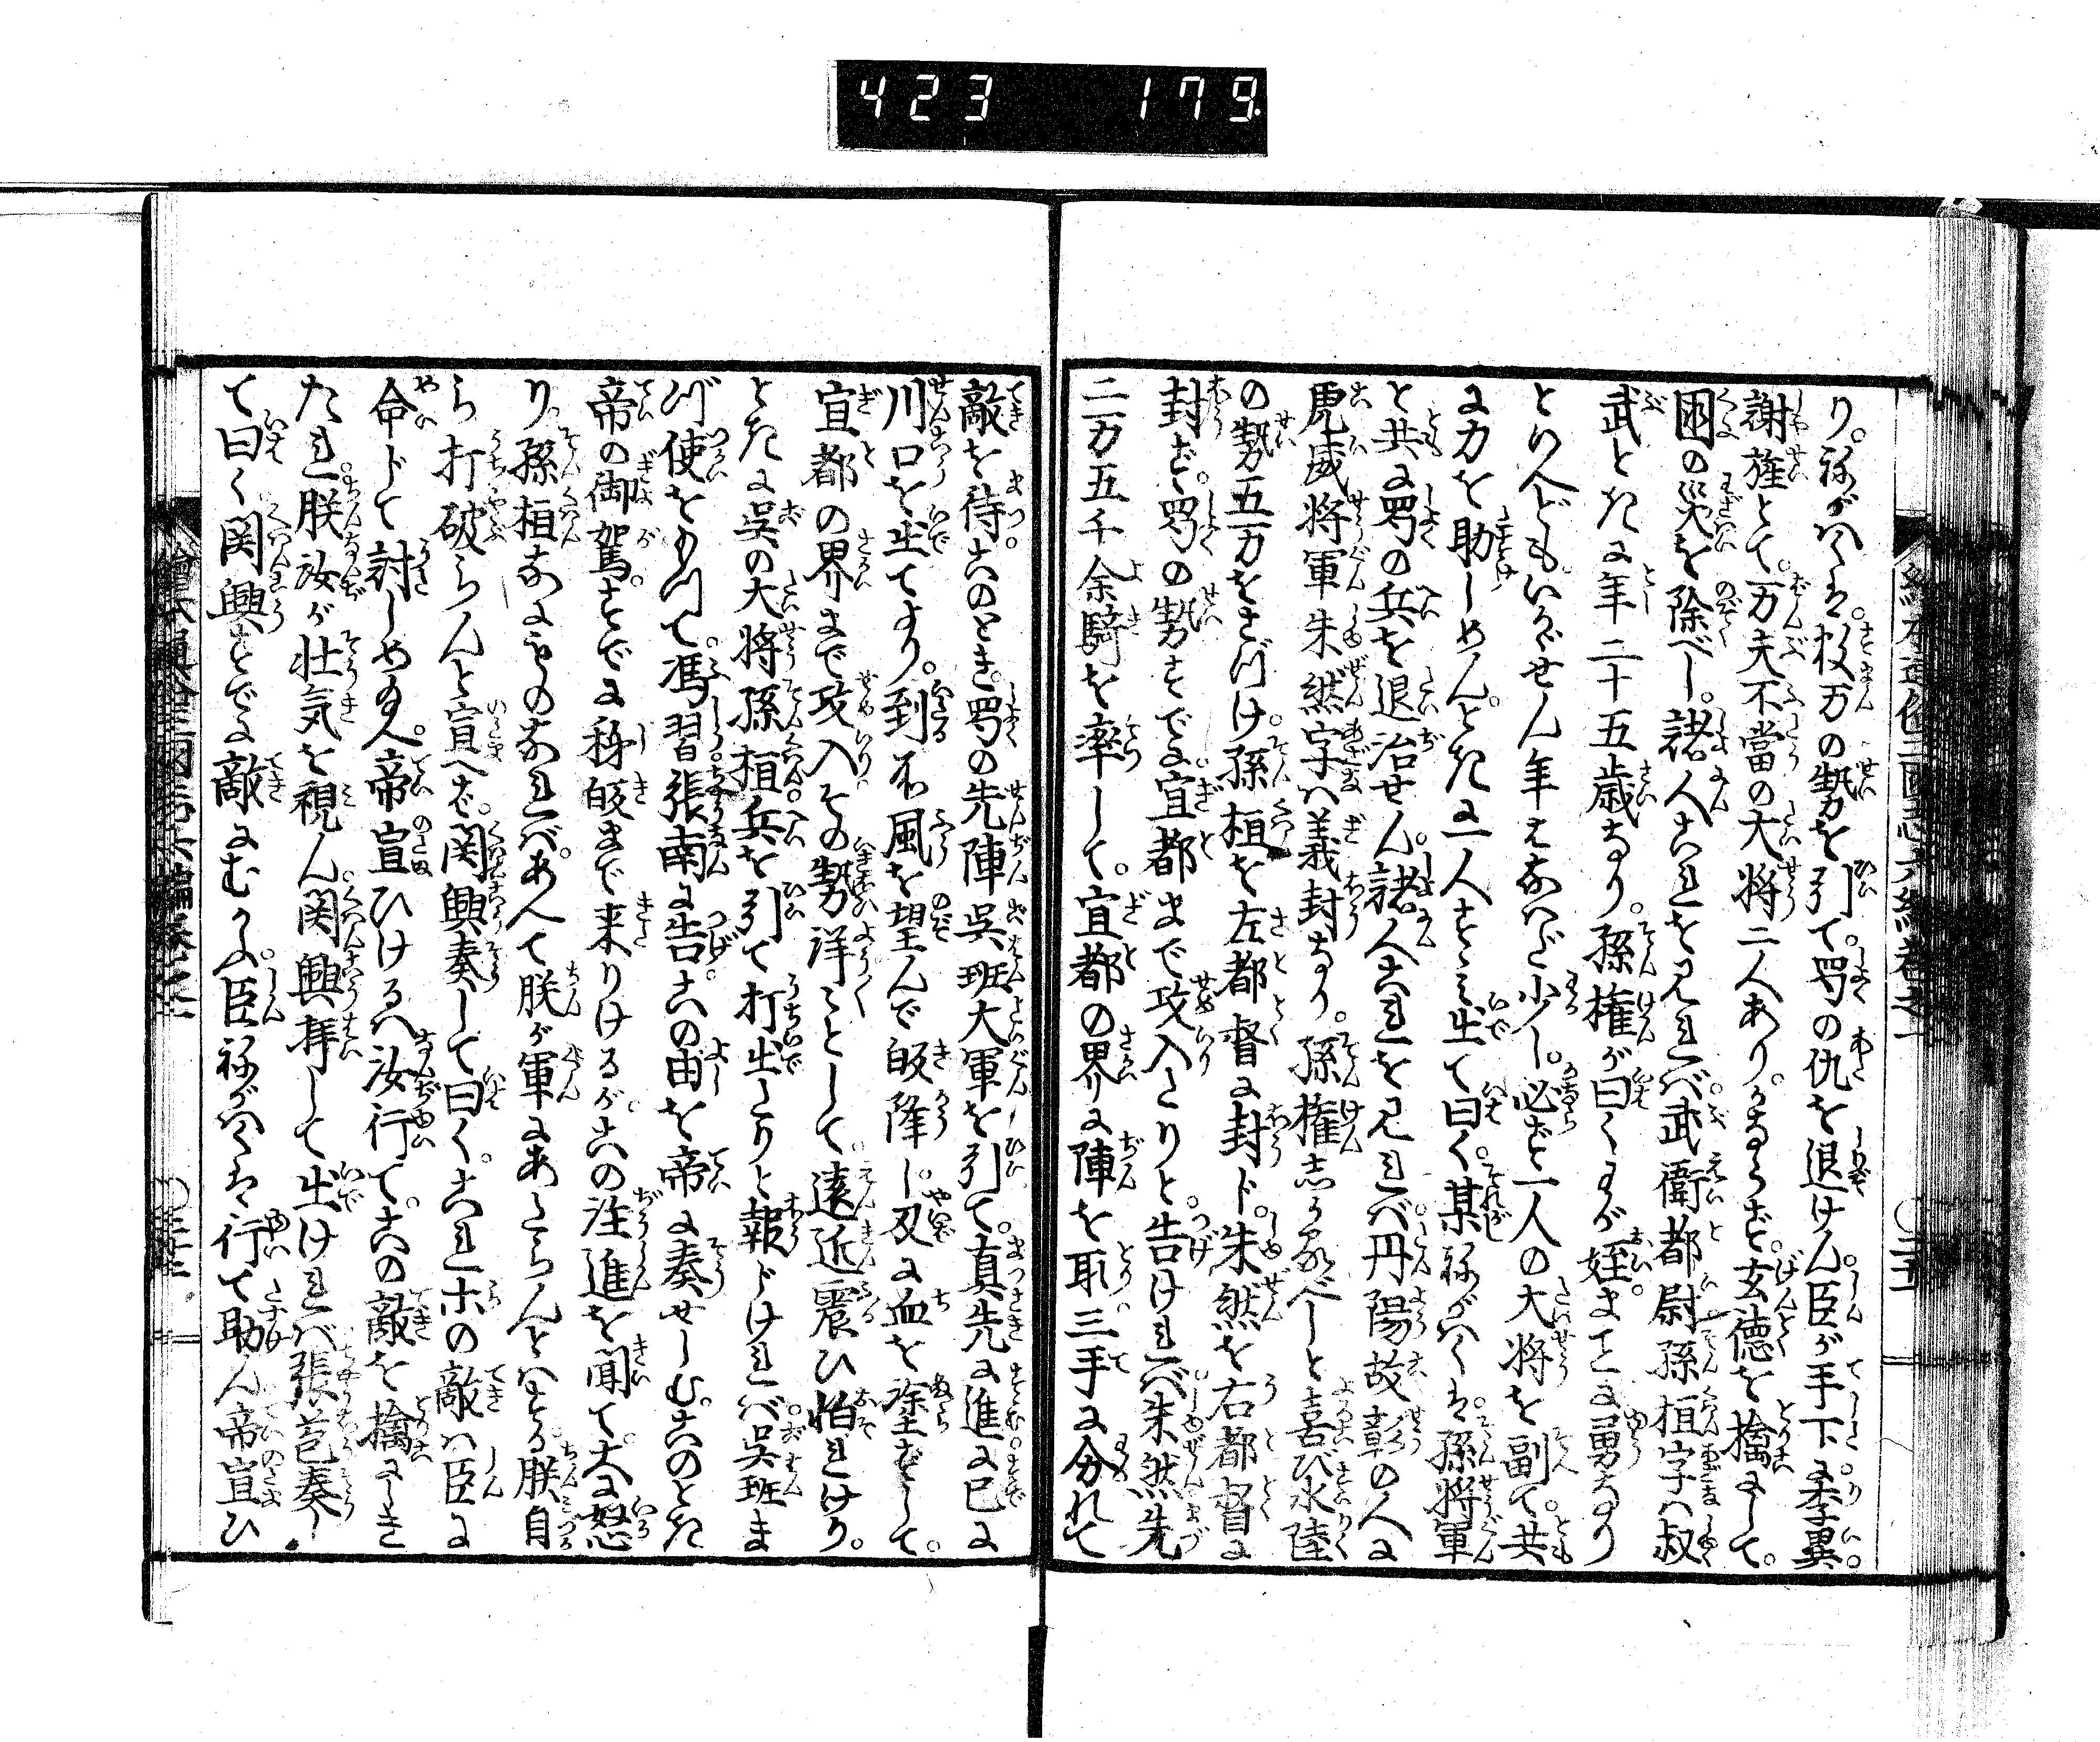 423 179
り。ねがはくは。数万の勢を引て。蜀の仇を退けん。臣が手下に李異。
謝旌とて。万夫不當の大将二人あり。かならず。玄徳を擒にして。
国の災を除べし。諸人これを見れば。武衛都尉孫桓字は叔
武とたに年二十五歳なり。孫権が曰くわが姪。まことに勇なり
とりへども。いかゞせん年はなはだ少し。必ず一人の大将を副て。共
に力を助しめん。ときに一人すゝみ出て曰く。某ねがはくは。孫将軍
と共に蜀の兵を退治せん。諸人これを見れば。丹陽故彰の人に
虎威将軍朱然字は義封なり。孫権しかるべしと喜び水陸
の勢五万をさづけ。孫桓を左都督に封じ。朱然を右都督に
封ず。蜀の勢すでに宜都まで攻入たりと。告けれバ。朱然先
二万五千余騎を率して。宜都の界に陣を取。三手に分れて
敵を待。このとき。蜀の先陣呉班大軍を引て。真先に進に已に
川口を出てより。到る処風を望んで皈降し。刃に血を塗ずして。
宜都の界まで攻入。その勢洋々として。遠近震ひ怕れけり。
ときに呉の大将孫桓。兵を引て打出たりと報じけれバ。呉班ま
づ使をもつて。馮習。張南に告。この由を帝に奏せしむ。このとき
帝の御駕。すでに秭皈まで来りけるが。この注進を聞て。大に怒
り。孫桓なにものなれバ。あへて朕が軍にあたらんとはする。朕自
ら打破らんと宣へば。関興奏して曰く。これホの敵は臣に
命じて討しめ給へ。帝宣ひけるハ汝行て。この敵を擒にしき
たれ。朕汝が壮気を視ん。関興拝して出けれバ張苞奏し
て曰く関興すでに敵にむかふ。臣ねがはくは行て助ん帝宣ひ